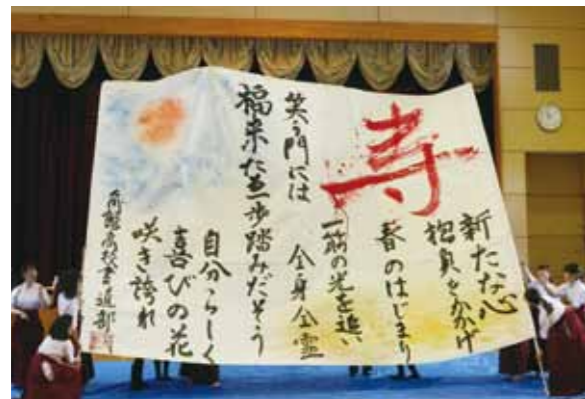 寿
新たな心
抱負をかかげ
春のはじまり
一筋の光を追い
全身全霊
笑う門には
福来たる一歩踏みだそう
自分らしく
喜びの花
咲き誇れ
高校書道部